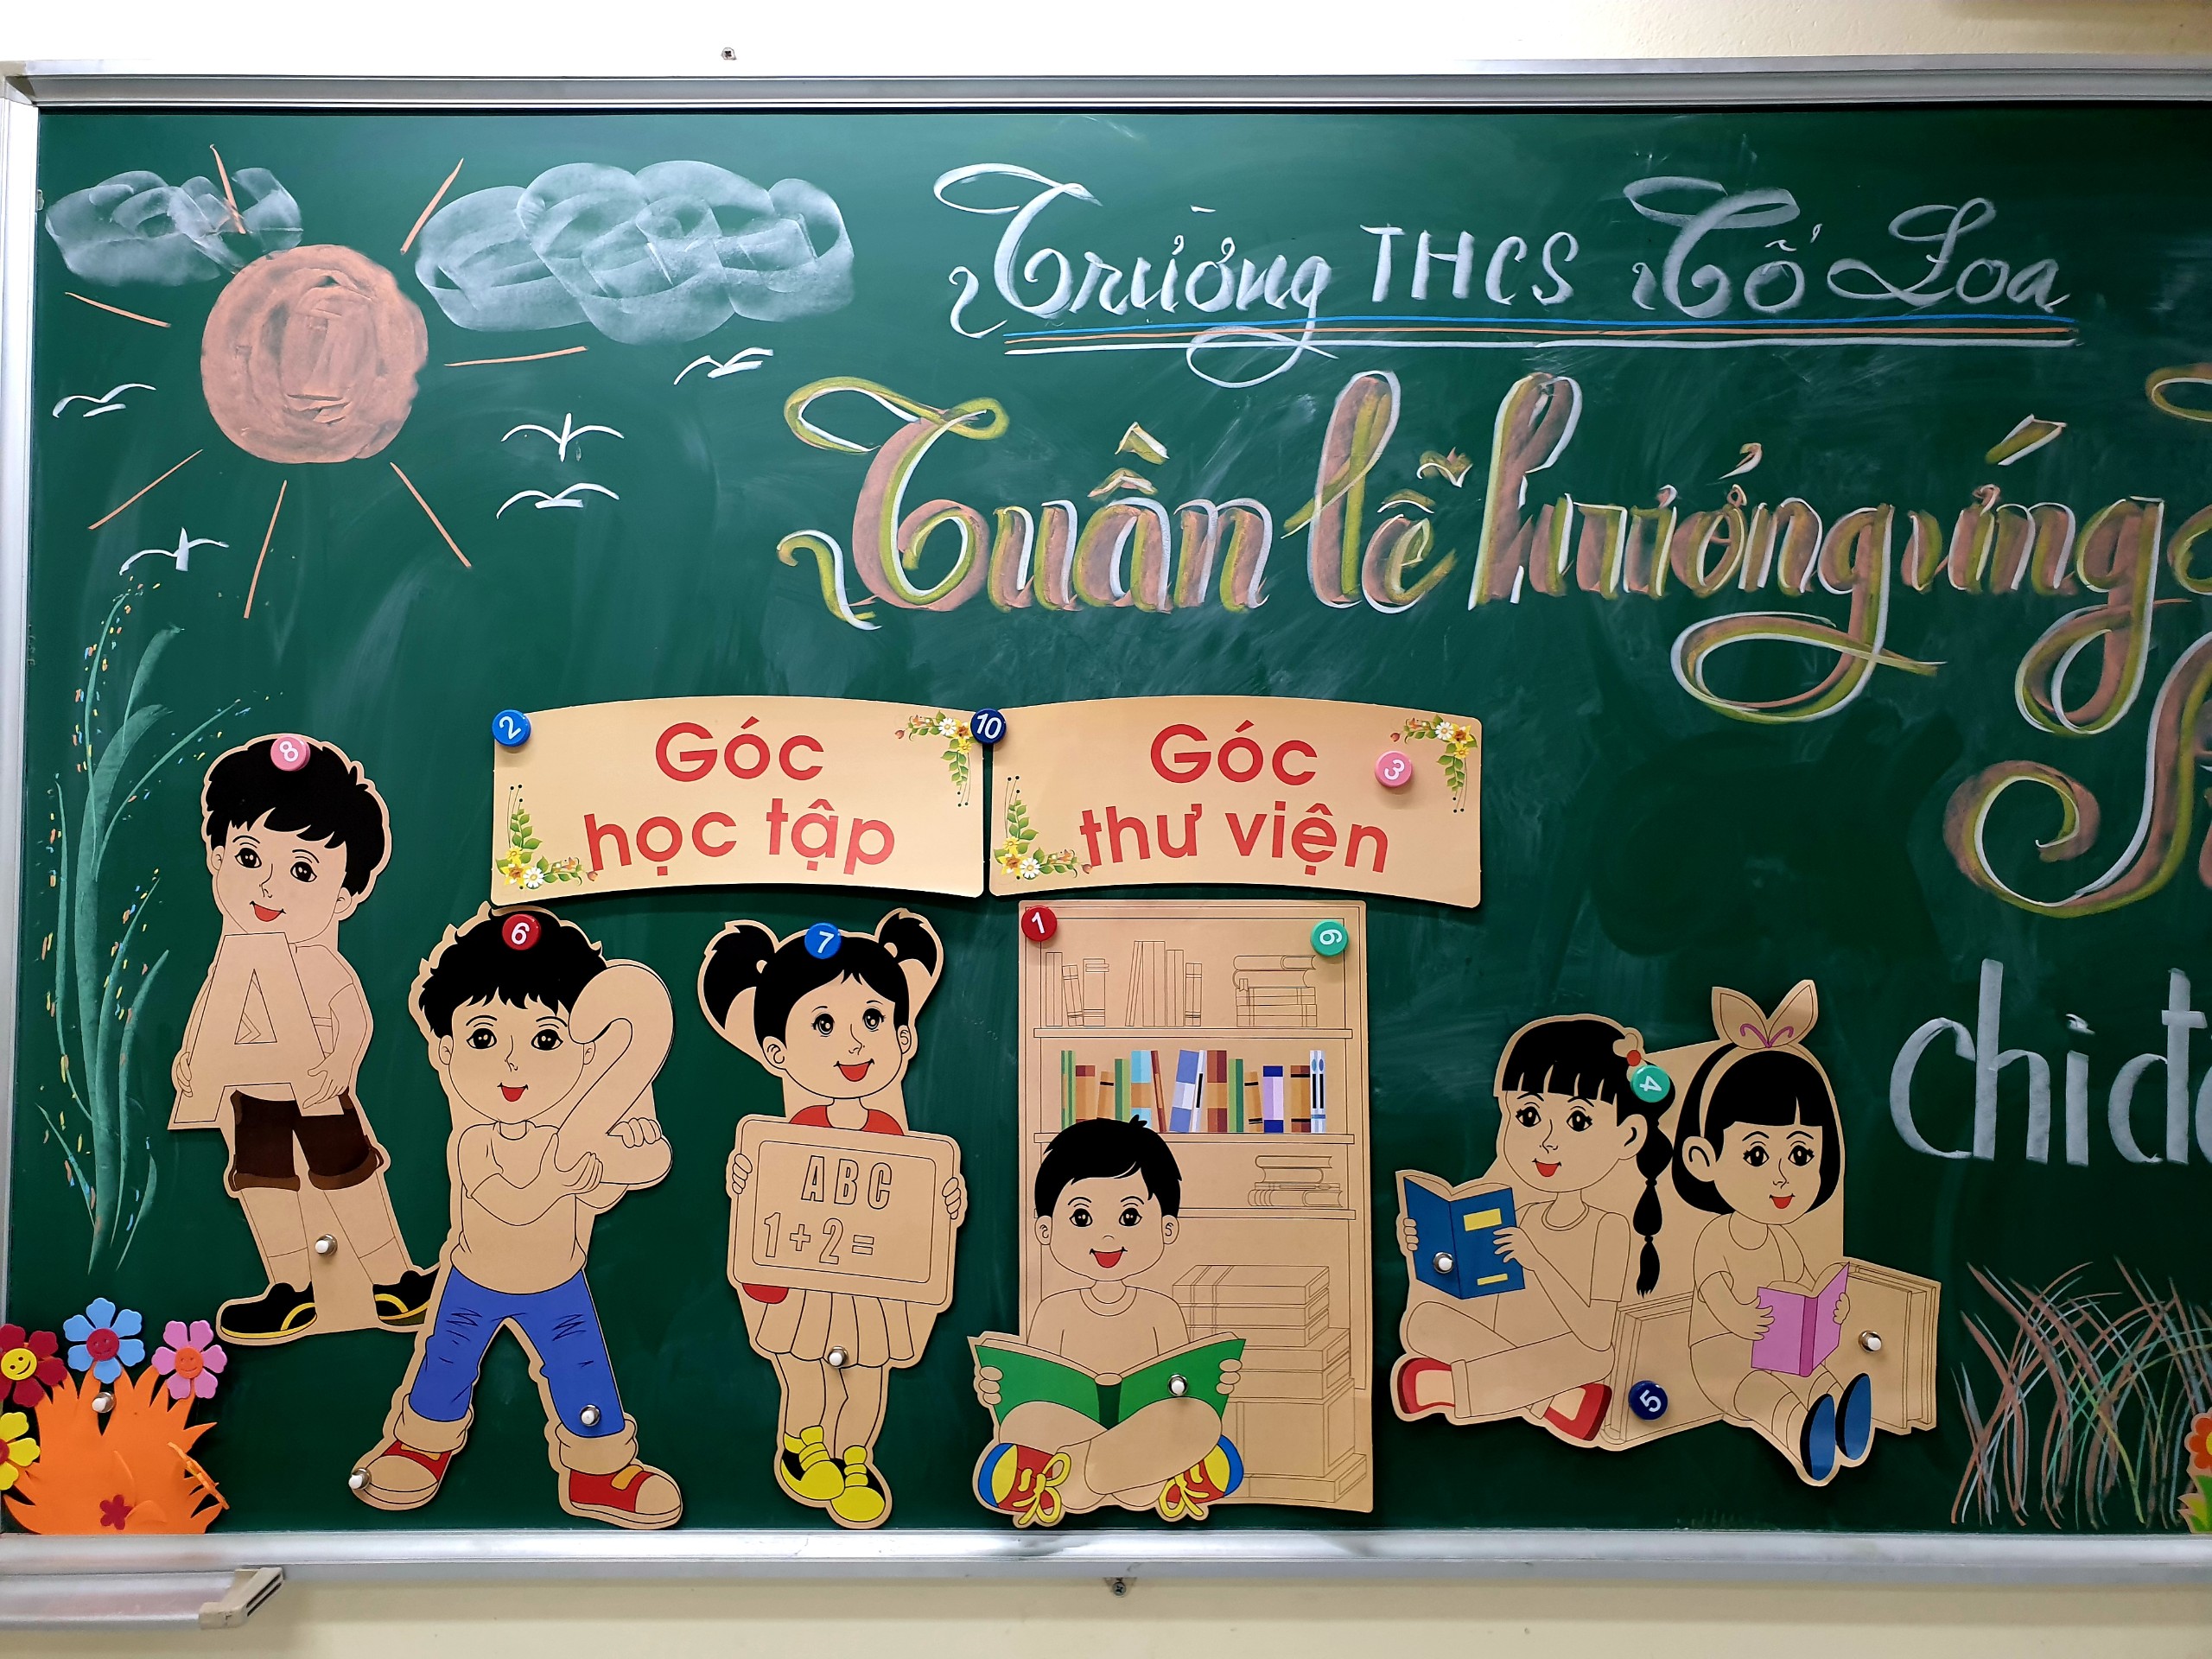 Trường THCS Cổ Loa
Tuần lễ hưởng ứng
2
10
Góc
học tập
Góc
thư viện
3
8
6
7
1
9
A
2
chi
4
ABC
1+2=
5